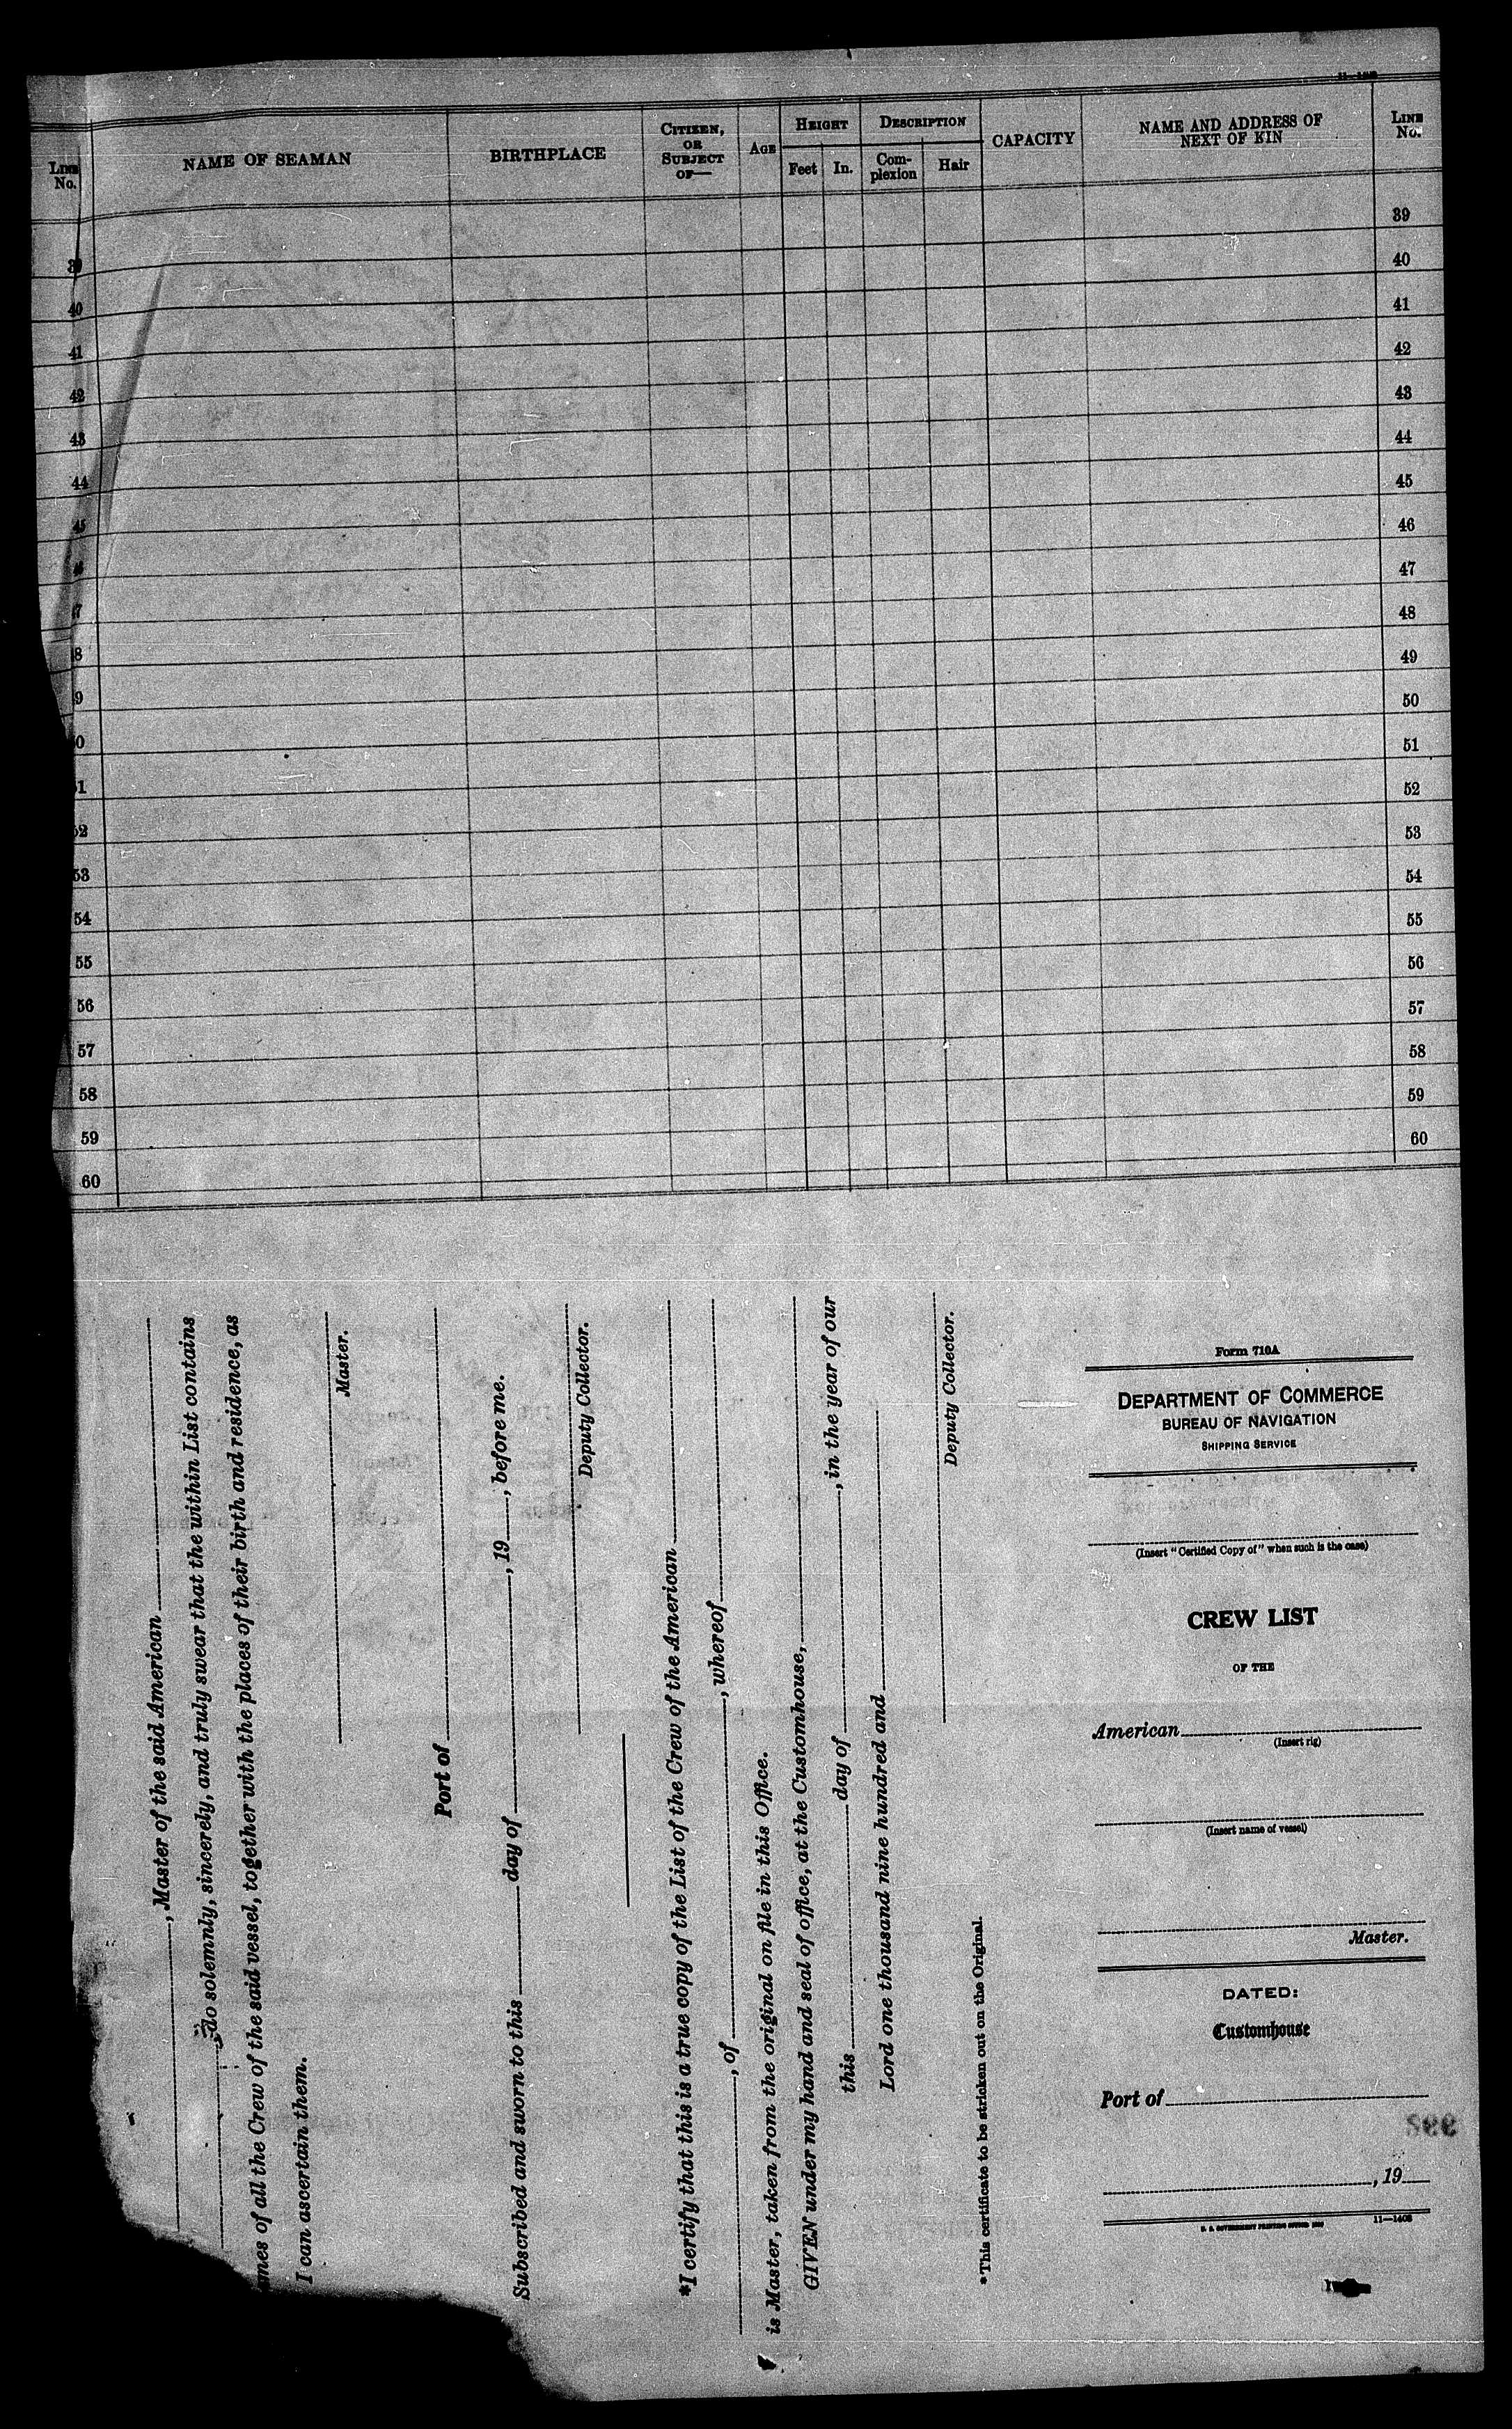 LINE No. NAME OF SEAMAN BIRTHPLACE CITIZEN, OR SUBJECT OF— AGE HEIGHT Feet In. DESCRIPTION Complexion Hair CAPACITY NAME AND ADDRESS OF NEXT OF KIN LINE No.
39 39
40 40
41 41
42 42
43 43
44 44
45 45
6 46
7 47
8 48
9 49
0 50
51 51
52 52
53 53
54 54
55 55
56 56
57 57
58 58
59 59
60 60
, Master of the said American
, do solemnly, sincerely, and truly swear that the within List contains
mes of all the Crew of the said vessel, together with the places of their birth and residence, as
I can ascertain them.
Master.
Port of
Subscribed and sworn to this day of , 19 , before me.
Deputy Collector.
*I certify that this is a true copy of the List of the Crew of the American
, of , whereof
is Master, taken from the original on file in this Office.
GIVEN under my hand and seal of office, at the Customhouse,
this day of , in the year of our
Lord one thousand nine hundred and
Deputy Collector.
*This certificate to be stricken out on the Original.
Form 710A
DEPARTMENT OF COMMERCE
BUREAU OF NAVIGATION
SHIPPING SERVICE
(Insert "Certified Copy of" when such is the case)
CREW LIST
OF THE
American
(Insert rig)
(Insert name of vessel)
Master.
DATED:
Customhouse
Port of
see
, 19
U. S. GOVERNMENT PRINTING OFFICE 11—1408